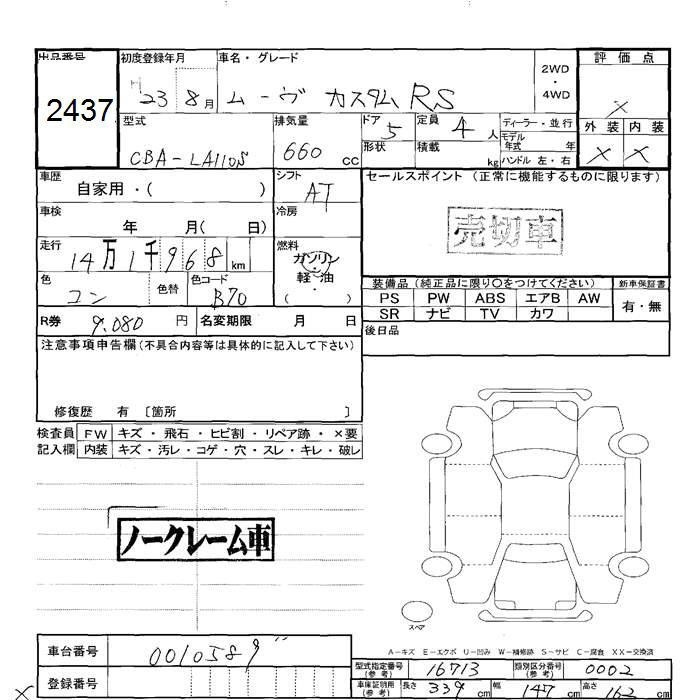 出品番号 初度登録年月 車名・グレード 2WD・4WD 評価点
2437 H 23 8月 ムーヴ カスタム RS ×
型式 排気量 ドア 定員 ディーラー・並行 外装 内装
CBA-LA110S 660cc 5 4人 モデル年式 年 × ×
形状 積載 kg ハンドル 左・右
車歴 自家用・( ) シフト AT セールスポイント (正常に機能するものに限ります)
車検 年 月( 日) 冷房
売切車
走行 14万1千968km 燃料 ガソリン・軽・油・( )
色 コン 色替 色コード B70
装備品 (純正品に限り○をつけてください) 新車保証書
PS PW ABS エアB AW 有・無
SR ナビ TV カワ
R券 9,080円 名変期限 月 日 後日品
注意事項申告欄 (不具合内容等は具体的に記入して下さい)
修復歴 有 [箇所 ]
検査員記入欄 FW キズ・飛石・ヒビ割・リペア跡・×要
内装 キズ・汚レ・コゲ・穴・スレ・キレ・破レ
ノークレーム車
スペア
A-キズ E-エクボ U-凹み W-補修跡 S-サビ C-腐食 XX-交換済
車台番号 0010589
型式指定番号(参考) 16713 類別区分番号(参考) 0002
登録番号
車庫証明用(参考) 長さ 339cm 幅 147cm 高さ 162cm
×